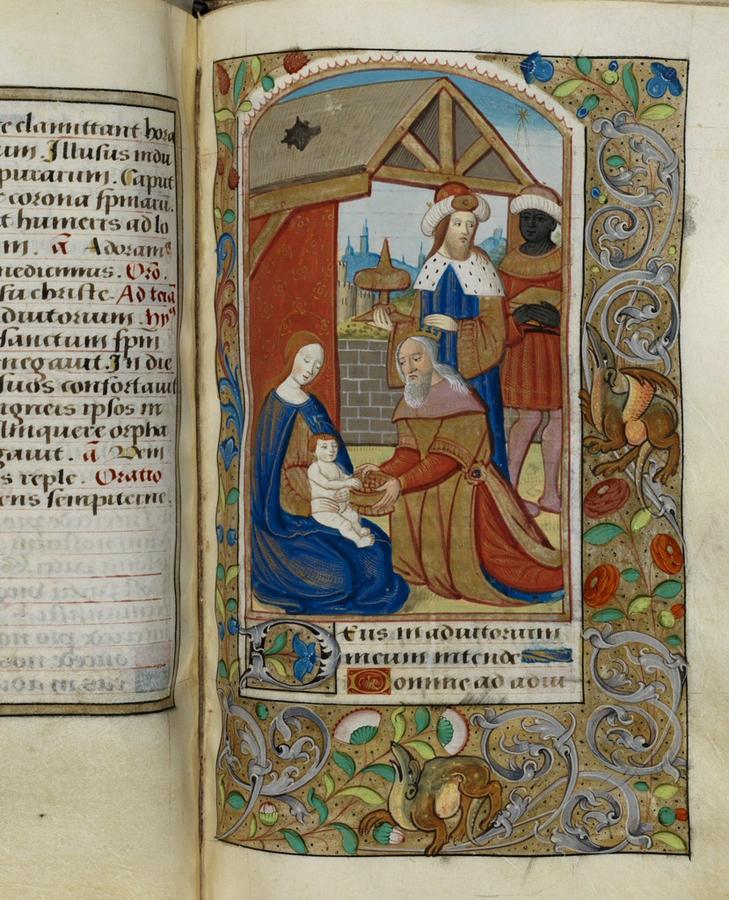 te clamittant hora
um. Illusus indu
purarum. Caput
corona spinarū.
t humeris ad lo
m. ā Adoramꝰ
nedicimus. Orō.
su christe. Ad terā
diutorium. hyꝰ
sanctum spm̄
negauit. In die
suos confortauit
igneis ipsos in
linquere orpha
gauit. ā Veni
s reple. Oratio
ens sempiterne.
Deus in adiutorium
meum intende
Domine ad adiu